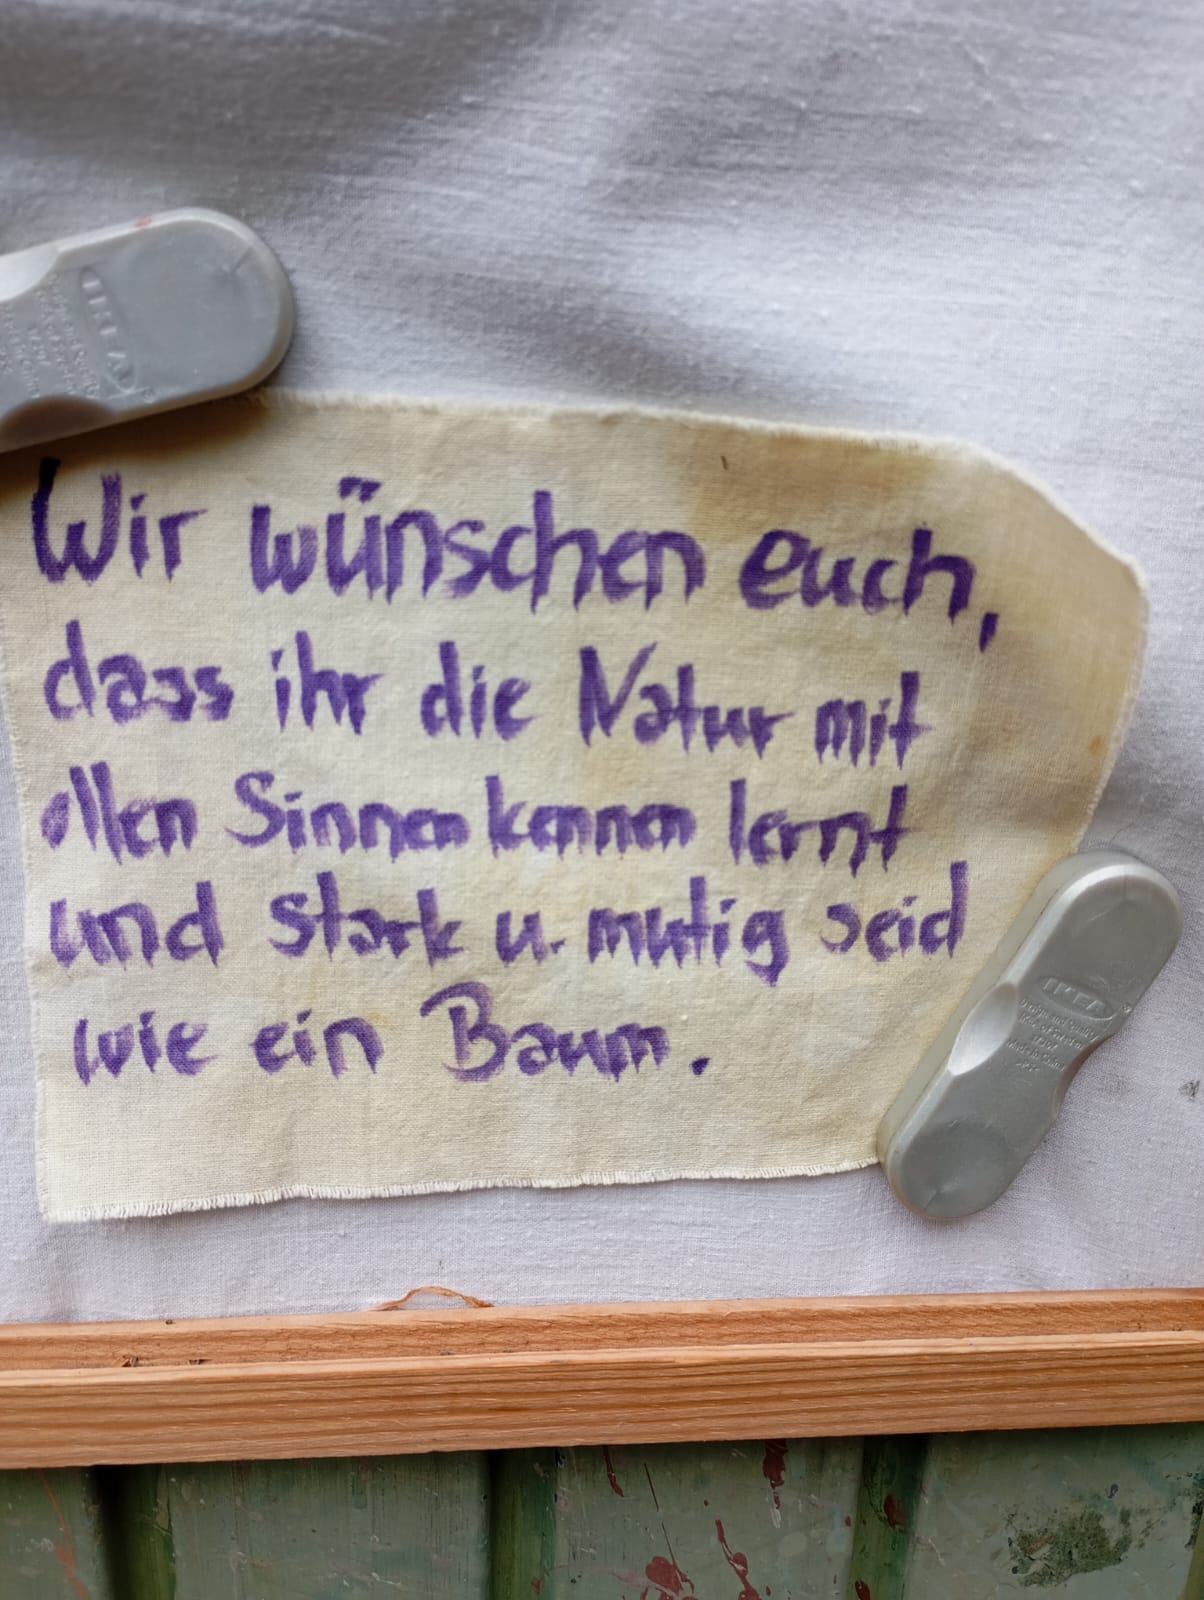 IKEA
Wir wünschen euch,
dass ihr die Natur mit
allen Sinnen kennen lernt
und stark u. mutig seid
wie ein Baum.
IKEA